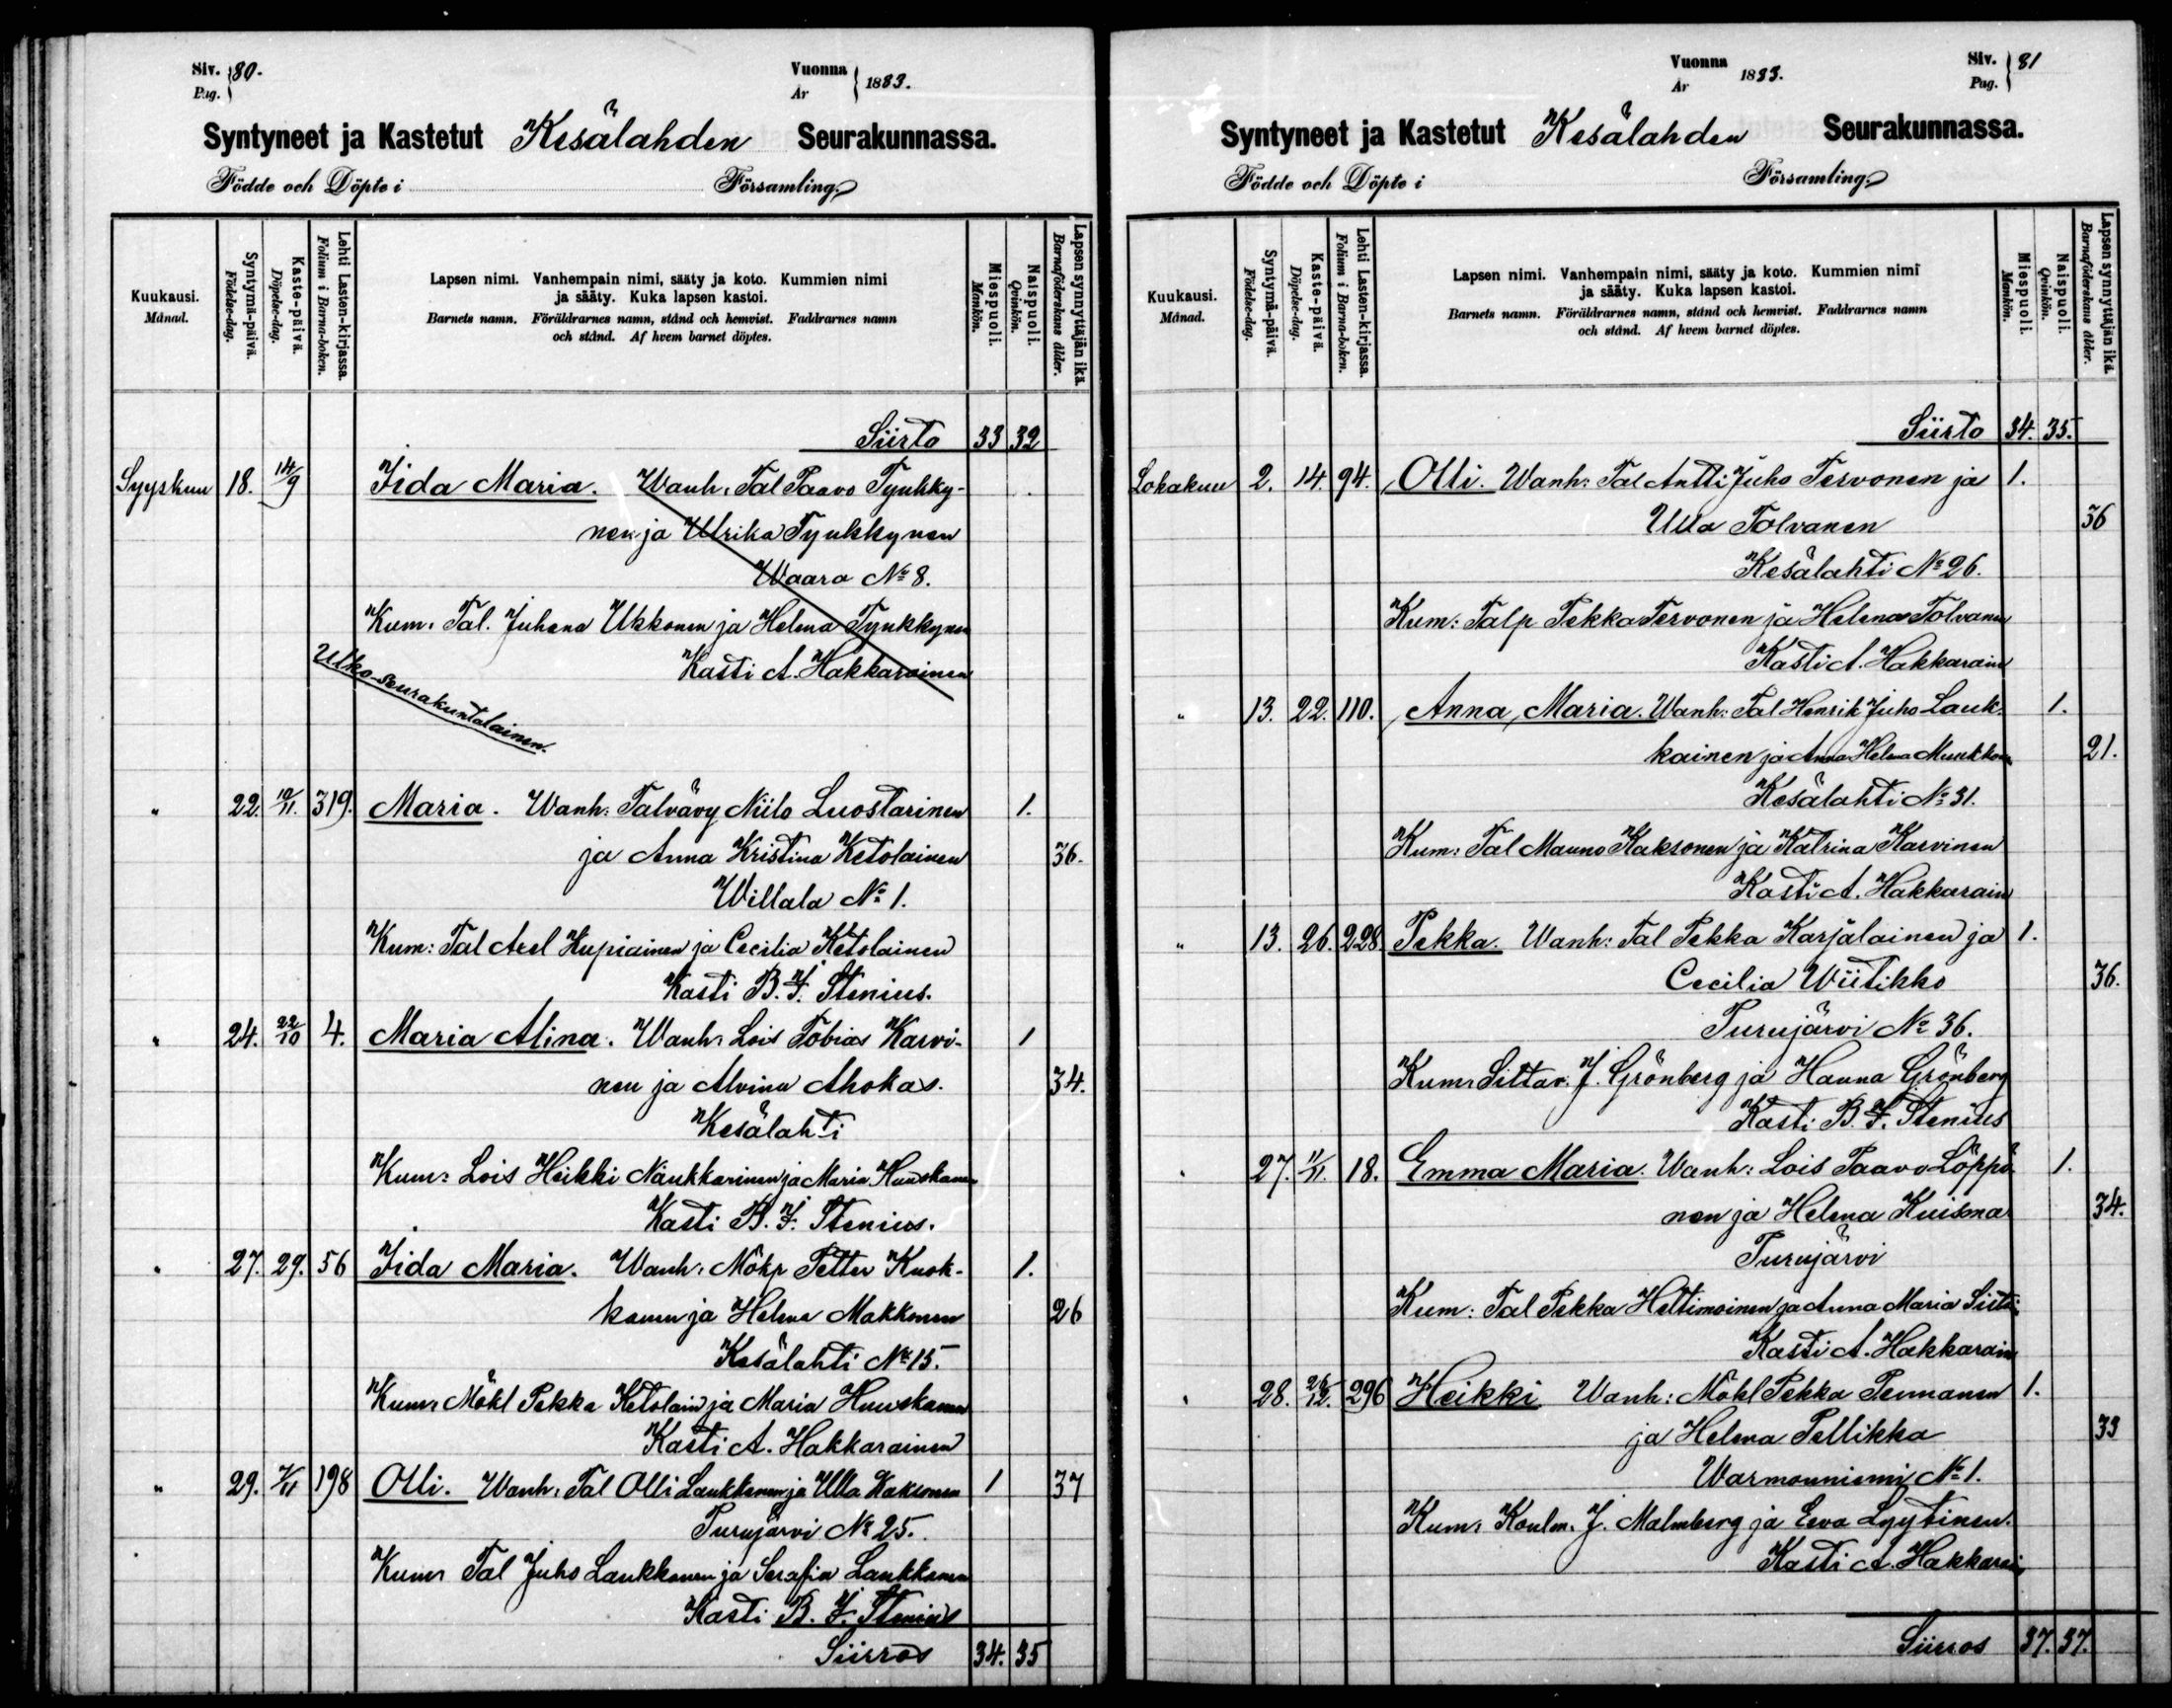 Siv. 80.
Pag.
Vuonna 1883.
År
Syntyneet ja Kastetut Kesälahden Seurakunnassa.
Födde och Döpte i Församling.
Kuukausi.
Månad.
Syntymä-päivä.
Födelse-dag.
Kaste-päivä.
Döpelse-dag.
Lehti Lasten-kirjassa.
Folium i Barna-boken.
Lapsen nimi. Vanhempain nimi, sääty ja koto. Kummien nimi
ja sääty. Kuka lapsen kastoi.
Barnets namn. Föräldrarnes namn, stånd och hemvist. Faddrarnes namn
och stånd. Af hvem barnet döptes.
Miespuoli.
Mankön.
Naispuoli.
Qvinkön.
Lapsen synnyttäjän ikä.
Barnaföderskans ålder.
Siirto 33 32
Syyskuu 18. 14/9 Iida Maria. Wanh: Tal Paavo Tynkky-
nen ja Ulrika Tynkkynen
Waara No 8.
Kum: Tal. Juhana Ukkonen ja Helena Tynkkynen
Kasti A. Hakkarainen
Ulko-seurakuntalainen.
" 22. 10/11. 319. Maria. Wanh: Talvävy Niilo Luostarinen 1.
ja Anna Kristina Ketolainen 36.
Willala No 1.
Kum: Tal Axel Kupiainen ja Cecilia Ketolainen
Kasti B. F. Stenius.
" 24. 22/10 4. Maria Alina. Wanh: Lois Tobias Karvi- 1
nen ja Alvina Ahokas. 34.
Kesälahti
Kum: Lois Heikki Naukkarinen ja Maria Huuskanen
Kasti B. F. Stenius.
" 27. 29. 56 Iida Maria. Wanh: Mökp Petter Kuok- 1.
kanen ja Helena Makkonen 26
Kesälahti No 15.
Kum: Mökl Pekka Ketolain ja Maria Huuskanen
Kasti A. Hakkarainen
" 29. 7/11 198 Olli. Wanh: Tal Olli Laukkanen ja Ulla Kaksonen 1 37
Purujärvi No 25.
Kum: Tal Juho Laukkanen ja Serafia Laukkanen
Kasti B. F. Stenius
Siirros 34. 35
Vuonna 1883.
År
Siv. 81
Pag.
Syntyneet ja Kastetut Kesälahden Seurakunnassa.
Födde och Döpte i Församling.
Kuukausi.
Månad.
Syntymä-päivä.
Födelse-dag.
Kaste-päivä.
Döpelse-dag.
Lehti Lasten-kirjassa.
Folium i Barna-boken.
Lapsen nimi. Vanhempain nimi, sääty ja koto. Kummien nimi
ja sääty. Kuka lapsen kastoi.
Barnets namn. Föräldrarnes namn, stånd och hemvist. Faddrarnes namn
och stånd. Af hvem barnet döptes.
Miespuoli.
Mankön.
Naispuoli.
Qvinkön.
Lapsen synnyttäjän ikä.
Barnaföderskans ålder.
Siirto 34. 35.
Lokakuu 2. 14. 94. Olli. Wanh: Tal Antti Juho Tervonen ja 1.
Ulla Tolvanen 36
Kesälahti No 26.
Kum: Talp Pekka Tervonen ja Helena Tolvanen
Kasti A. Hakkarain
" 13. 22. 110. Anna Maria. Wanh: Tal Henrik Juho Lauk- 1.
kainen ja Anna Helena Muukkon 21.
Kesälahti No 31.
Kum: Tal Mauno Kaksonen ja Katrina Karvinen
Kasti A. Hakkarain
" 13. 26. 228. Pekka. Wanh: Tal Pekka Karjalainen ja 1.
Cecilia Wiitikko 36.
Purujärvi No 36.
Kum: Siltav. J. Grönberg ja Hanna Grönberg
Kasti B. F. Stenius
" 27. 11/11. 18. Emma Maria. Wanh: Lois Paavo Löppö- 1.
nen ja Helena Kuisma 34.
Purujärvi
Kum: Tal Pekka Heltimoinen ja Anna Maria
Kasti A. Hakkarain
" 28. 26/12. 296 Heikki Wanh: Mökl Pekka Pennanen 1.
ja Helena Pellikka 33
Warmonniemi No 1.
Kum: Koulm. J. Malmberg ja Eeva Lyytinen.
Kasti A. Hakkarai
Siirros 37. 37.